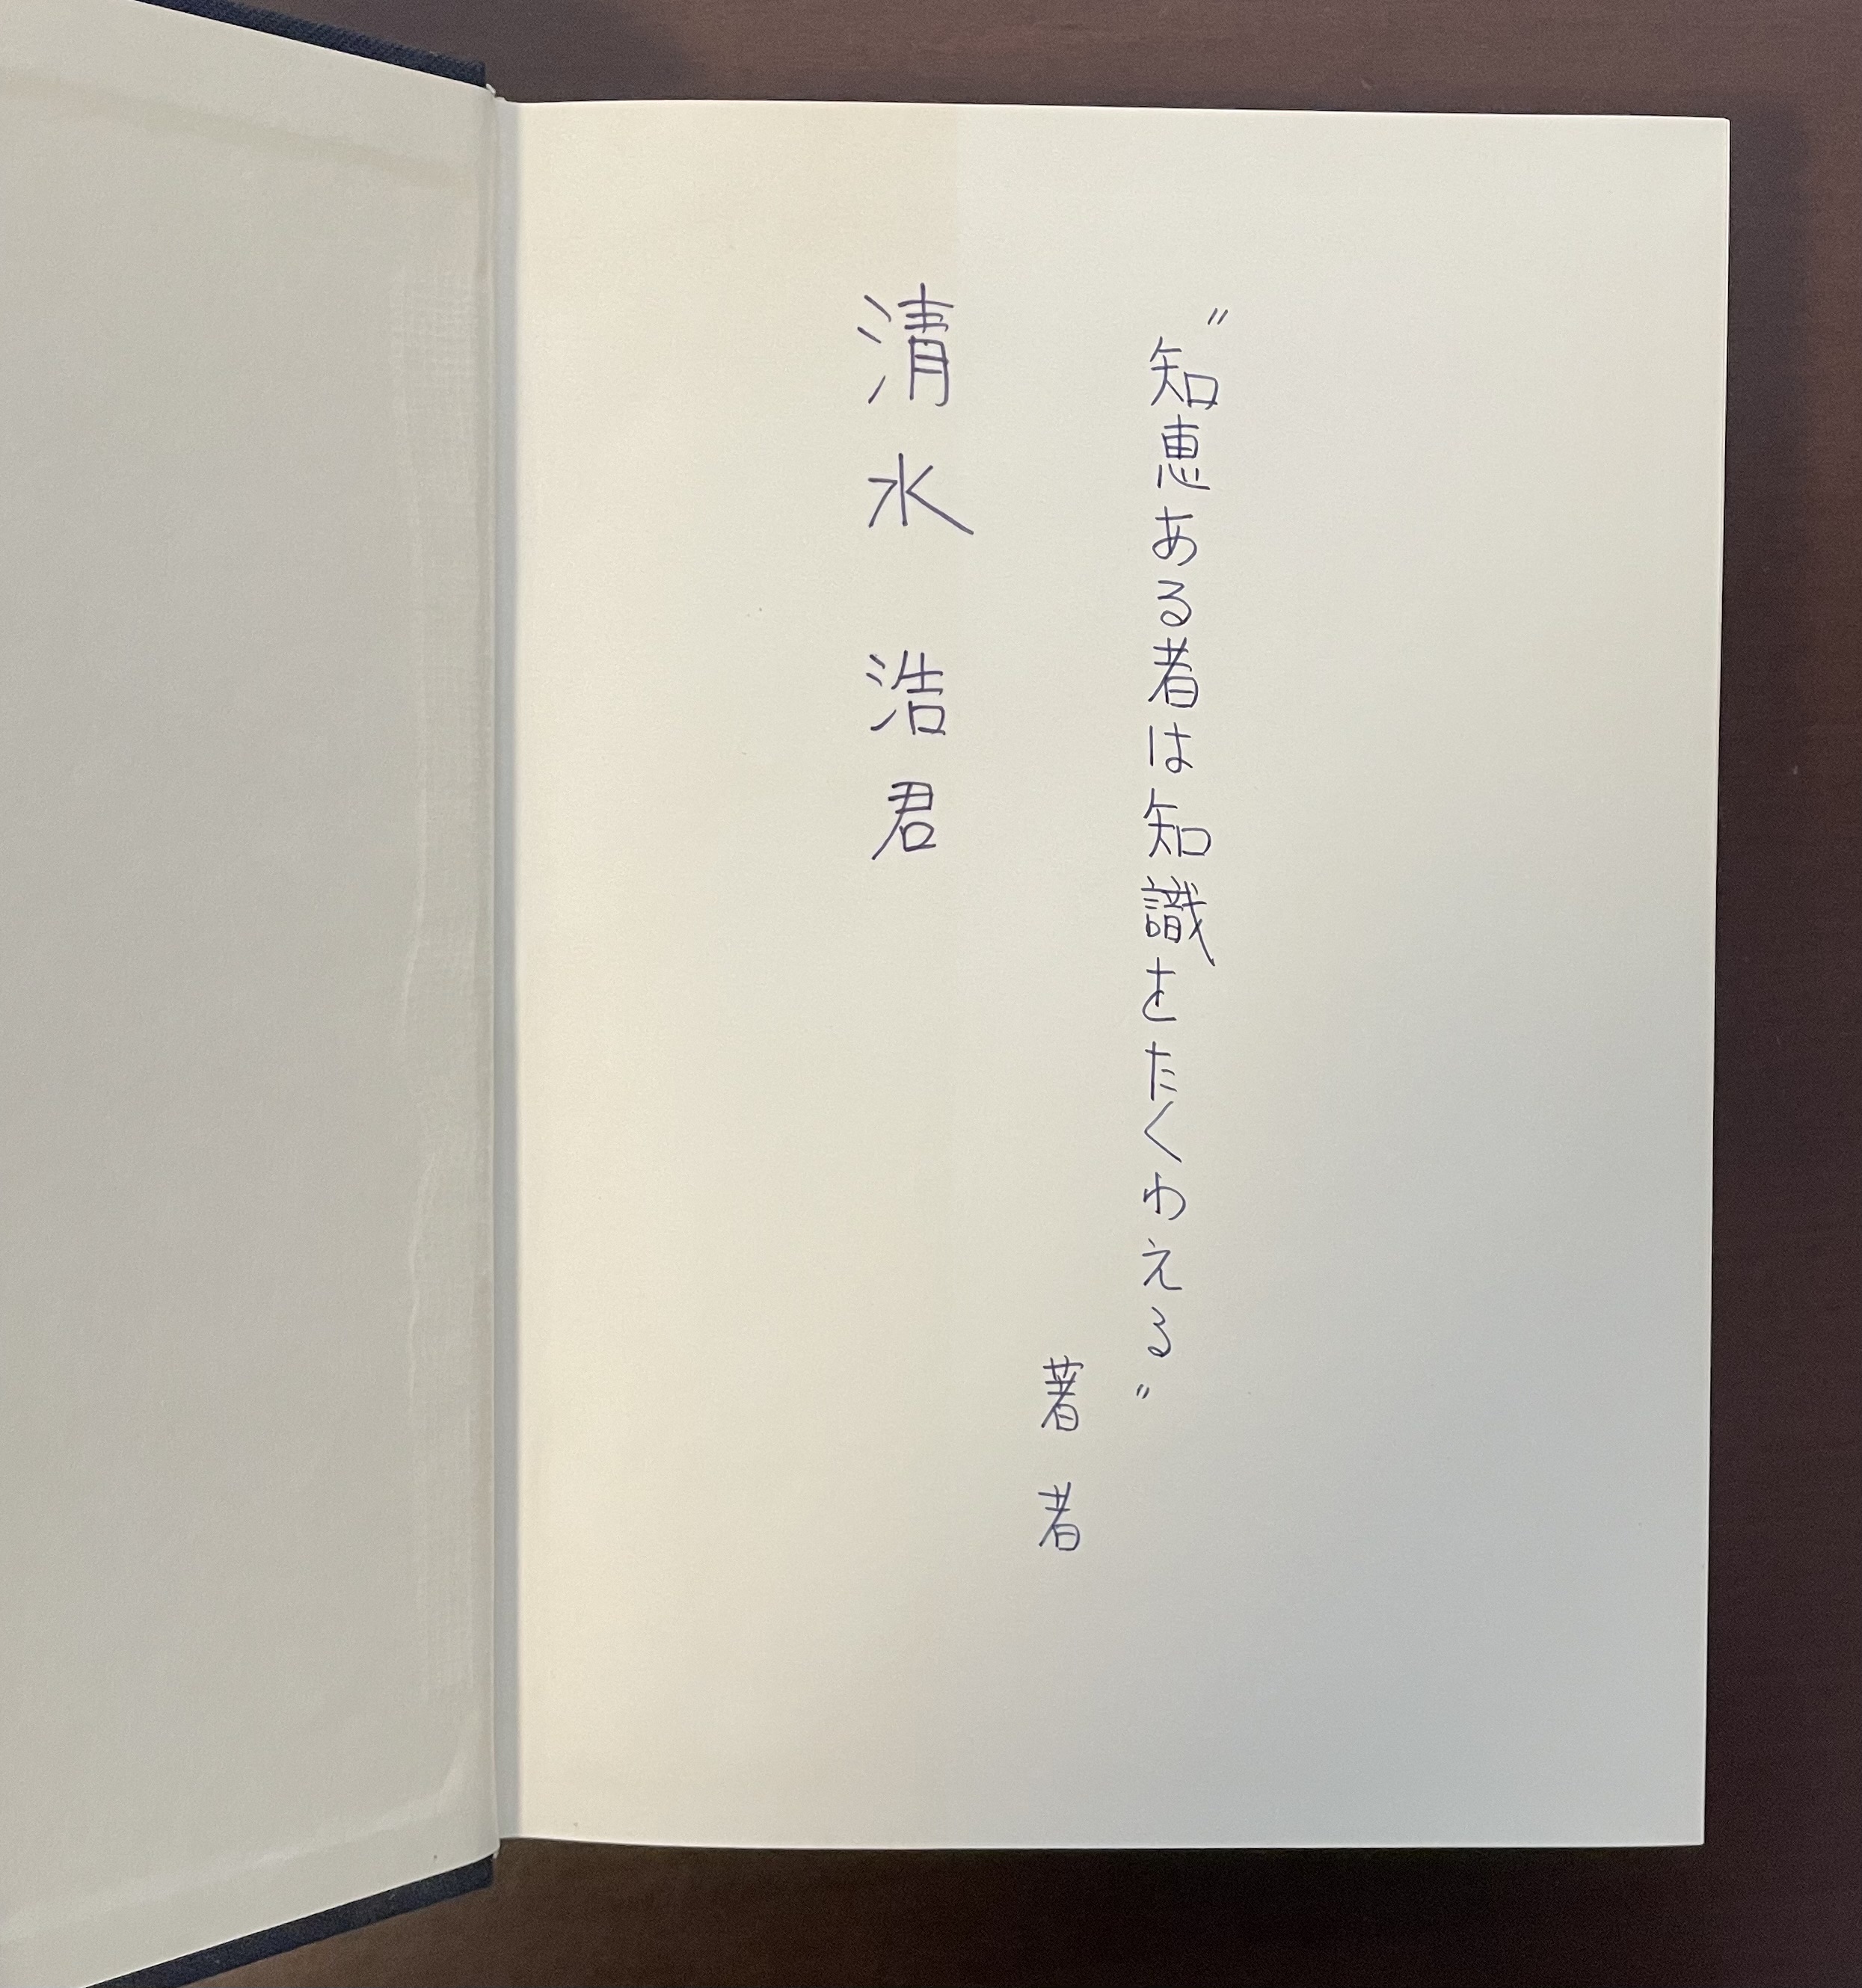 〃知恵ある者は知識をたくわえる〃
著者
清水 浩君